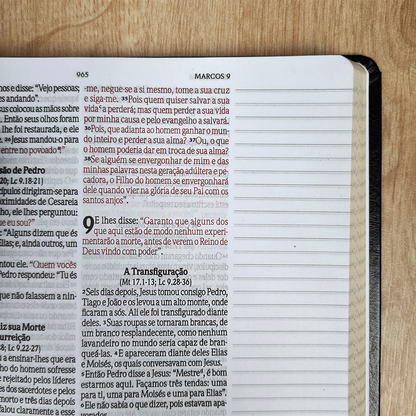 965
MARCOS 9
nos e disse: "Vejo pessoas;
es andando".
sus colocou as mãos sobre
Então seus olhos foram
lhe foi restaurada, e ele
²⁶Jesus mandou-o para
entre no povoado!"
são de Pedro
20; Lc 9.18-21)
ípulos dirigiram-se para
oximidades de Cesareia
o, ele lhes perguntou:
e eu sou?"
"Alguns dizem que és
Elias; e, ainda outros, um
ntou ele. "Quem vocês
Pedro respondeu: "Tu és
que não falassem a nin-
iz sua Morte
urreição
8; Lc 9.22-27)
a ensinar-lhes que era
ho do homem sofresse
e rejeitado pelos líderes
s dos sacerdotes e pelos
morto e três dias depois
falou claramente a esse
-me, negue-se a si mesmo, tome a sua cruz
e siga-me. ³⁵Pois quem quiser salvar a sua
vida a perderá; mas quem perder a sua vida
por minha causa e pelo evangelho a salvará.
³⁶Pois, que adianta ao homem ganhar o mun-
do inteiro e perder a sua alma? ³⁷Ou, o que
o homem poderia dar em troca de sua alma?
³⁸Se alguém se envergonhar de mim e das
minhas palavras nesta geração adúltera e pe-
cadora, o Filho do homem se envergonhará
dele quando vier na glória de seu Pai com os
santos anjos".
9 E lhes disse: "Garanto que alguns dos
que aqui estão de modo nenhum experi-
mentarão a morte, antes de verem o Reino de
Deus vindo com poder".
A Transfiguração
(Mt 17.1-13; Lc 9.28-36)
²Seis dias depois, Jesus tomou consigo Pedro,
Tiago e João e os levou a um alto monte, onde
ficaram a sós. Ali ele foi transfigurado diante
deles. ³Suas roupas se tornaram brancas, de
um branco resplandecente, como nenhum
lavandeiro no mundo seria capaz de bran-
queá-las. ⁴E apareceram diante deles Elias
e Moisés, os quais conversavam com Jesus.
⁵Então Pedro disse a Jesus: "Mestre, é bom
estarmos aqui. Façamos três tendas: uma
para ti, uma para Moisés e uma para Elias".
⁶Ele não sabia o que dizer, pois estavam apa-